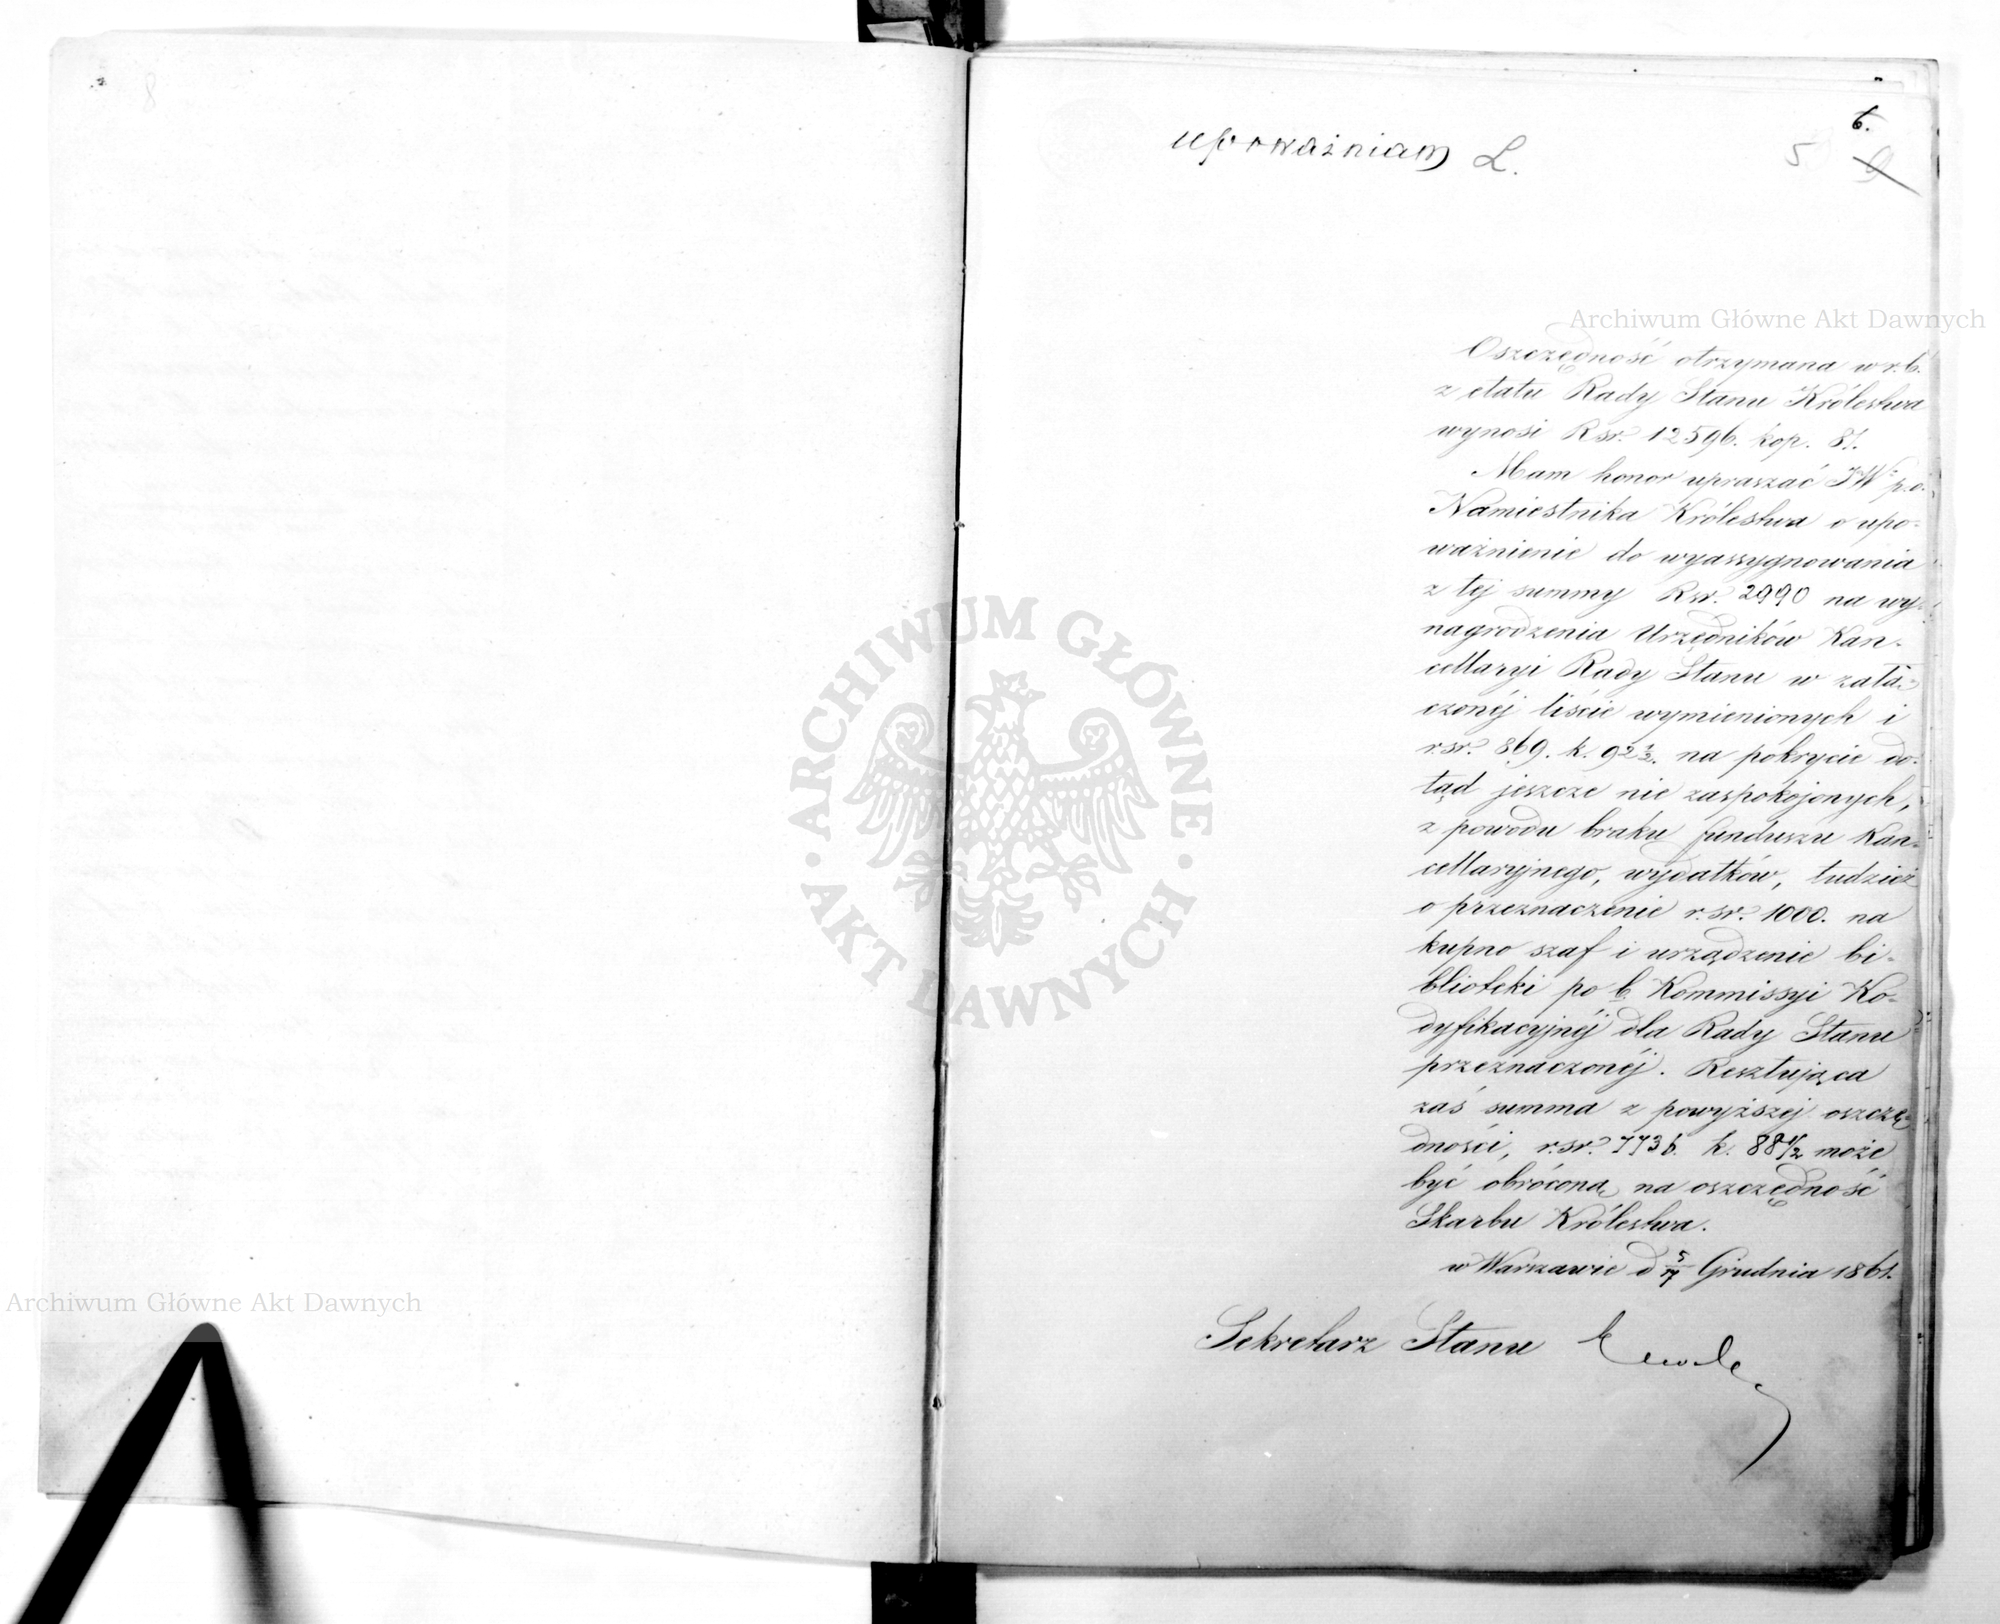 6.
upoważniam L.
5 9
Archiwum Główne Akt Dawnych
Oszczędność otrzymana w r. b.
z etatu Rady Stanu Królestwa
wynosi Rsr. 12596. kop. 81.
Mam honor upraszać JW. p.o.
Namiestnika Królestwa o upo-
ważnienie do wyassygnowania
z tej summy Rsr. 2990 na wy-
nagrodzenia Urzędników Kan-
cellaryi Rady Stanu w załą-
czonéj liście wymienionych i
r.sr. 869. k. 92 1/2. na pokrycie do-
tąd jeszcze nie zaspokojonych,
z powodu braku funduszu Kan-
cellaryjnego, wydatków, tudzież
o przeznaczenie r.sr. 1000. na
kupno szaf i urządzenie bi-
blioteki po b. Kommissyi Ko-
dyfikacyjnéj dla Rady Stanu
przeznaczonéj. Resztująca
zaś summa z powyższej oszczę-
dności, r.sr. 7736. k. 88 1/2 może
być obróconą na oszczędność
Skarbu Królestwa.
w Warszawie d 5/17 Grudnia 1861.
Sekretarz Stanu
ARCHIWUM GŁÓWNE
AKT DAWNYCH
Archiwum Główne Akt Dawnych